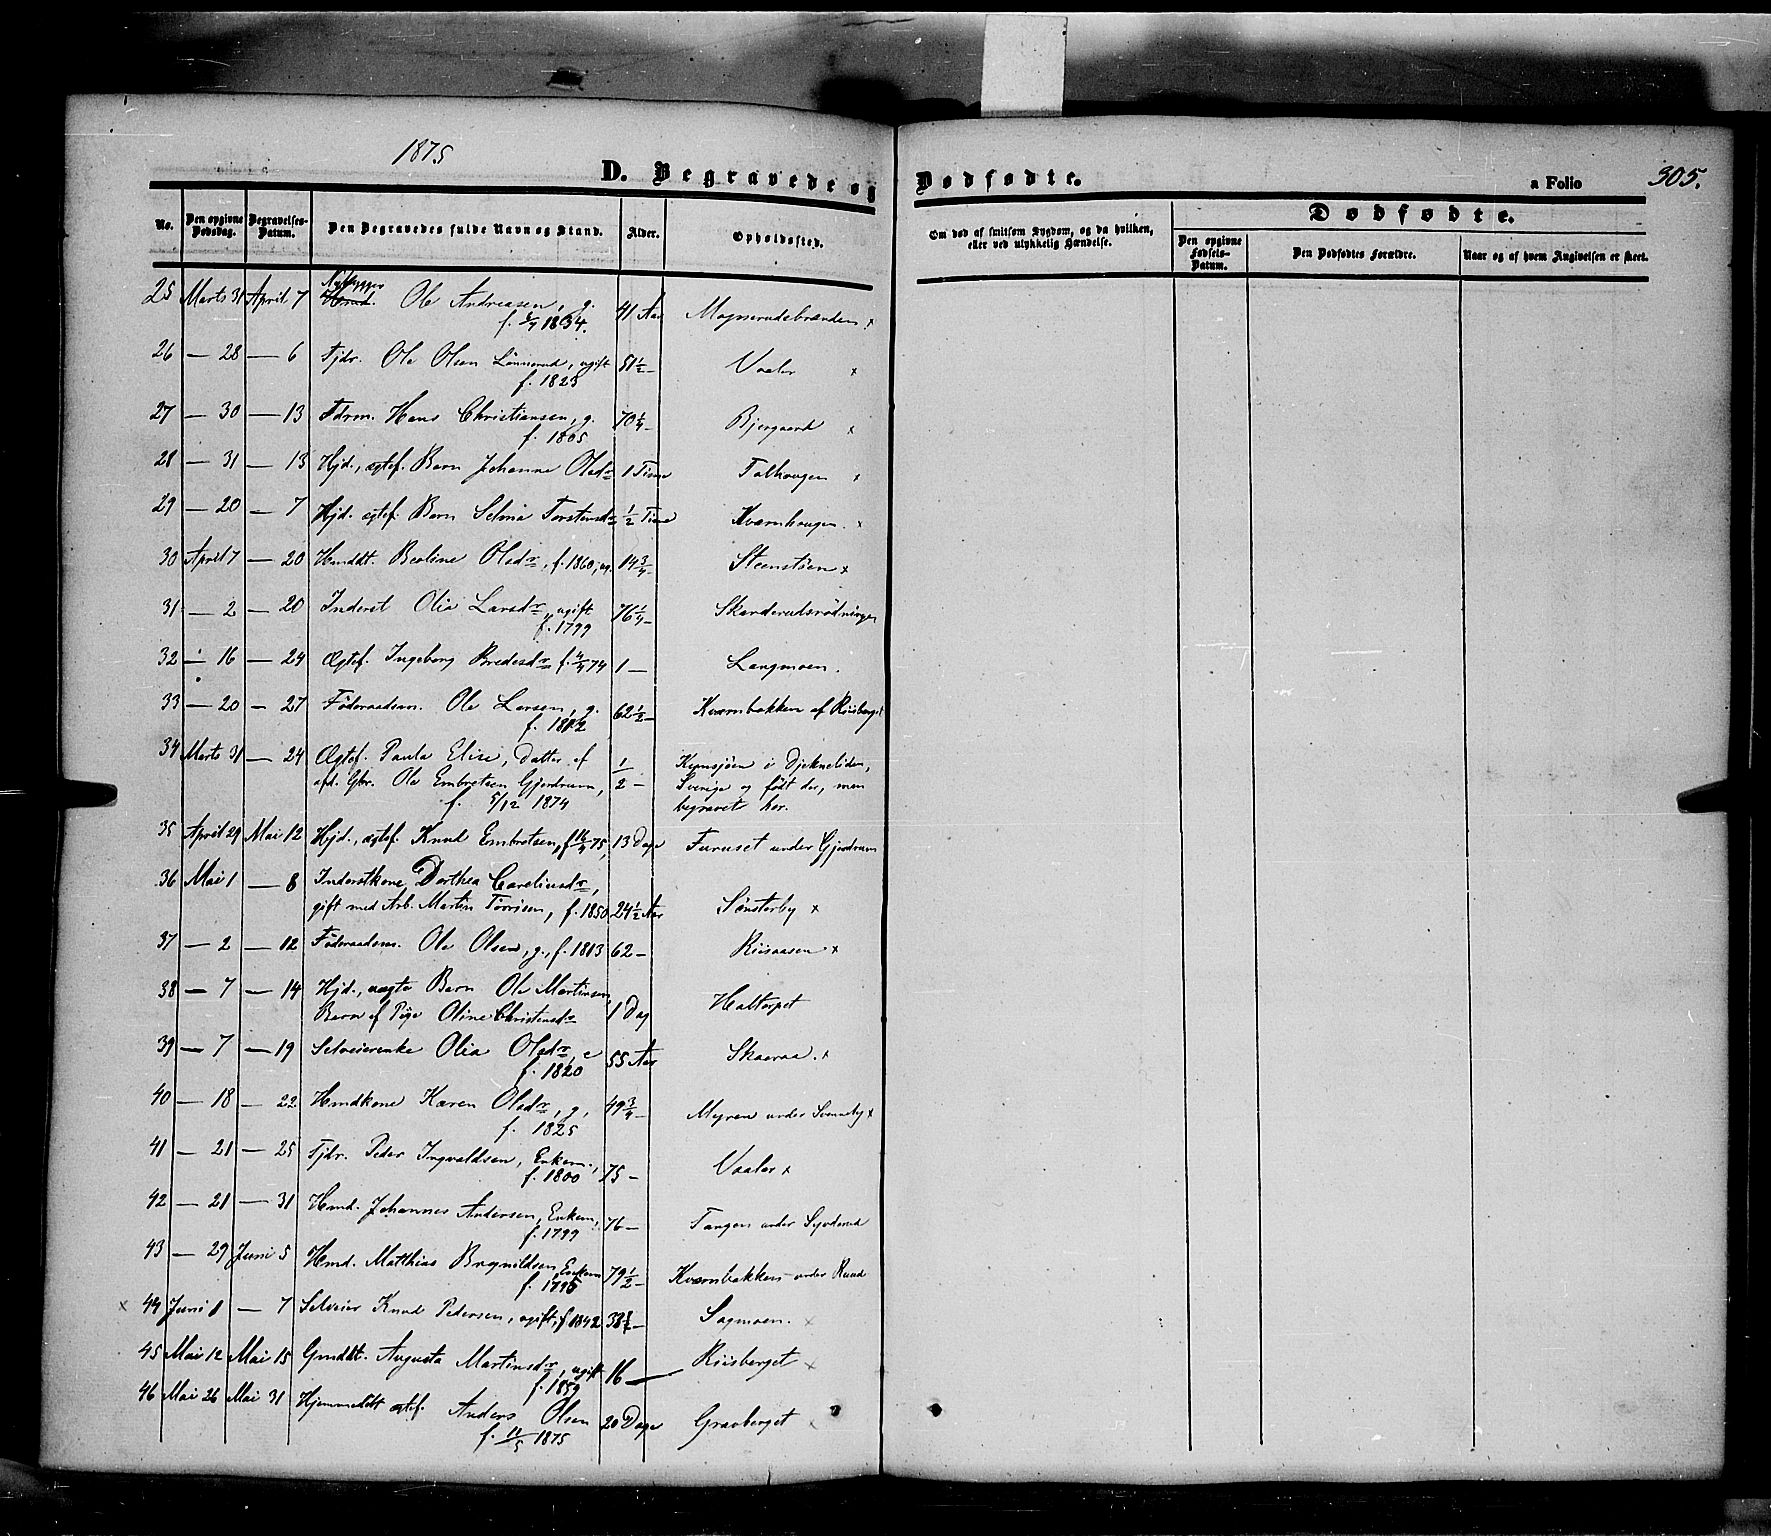 1875
D. Begravede og Dødfødte.
a Folio 305.
No. Den opgivne Dødsdag. Begravelses-Datum. Den Begravedes fulde Navn og Stand. Alder. Opholdssted. Om død af smitsom Sygdom, og da hvilken, eller ved ulykkelig Hændelse.
Dødfødte.
Den opgivne Fødsels-Datum. Den Dødfødtes Forældre. Naar og af hvem Angivelsen er skeet.
25 Marts 31 April 7 Nybygger Hmd. Ole Andreasen, g. 41 Aar Magnerudsbraaden x
f. 1834.
26 — 28 — 6 Fjdr. Ole Olsen Lönnerud, ugift 51½ – Vaaler x
f. 1823
27 — 30 — 13 Fdrm. Hans Christiansen, g. 70¼ – Bjergaard x
f. 1805
28 — 31 — 13 Hjd., ægtef. Barn Johanne Olsdr 1 Time Folhaugen x
29 — 20 — 7 Hjd. ægtef. Barn Selma Torstensdr ½ Time Kværnhaugen x
30 April 7 — 20 Hmddt. Beoline Olsdr, f. 1860, ug. 14¾ – Steenstöen x
31 — 2 — 20 Inderst Olia Larsdr, ugift 76¼ – Skanderudsrödningen
f. 1799
32 — 16 — 24 Ægtef. Ingeborg Bredesdr f. 4/4 74 1 — Langmoen.
33 — 20 — 27 Föderaadsm. Ole Larsen, g. 62½ – Kværnbakken af Riisberget
f. 1812
34 Marts 31 — 24 Ægtef. Paula Elise, Datter af ½ – Kymsjöen i Djekneliden,
afd. Gbr. Ole Embretsen Gjerdrum, Sverige og födt der, men
f. 5/12 1874 begravet her.
35 April 29 Mai 12 Hjd., ægtef. Knud Embretsen, f. 16/4 75, 13 Dage Furuset under Gjerdrum
36 Mai 1 — 8 Inderstkone Dorthea Careliusdr,
gift med Arb. Martin Torrisen, f. 1850 24½ Aar Sönsterby x
37 — 2 — 12 Föderaadsm. Ole Olsen, g., f. 1813 62 – Riisaasen x
38 — 7 — 14 Hjd., uægte Barn Ole Martinsen,
Barn af Pige Oline Christensdr 1 Dag Haltorpet
39 — 7 — 19 Selveierenke Olia Olsdr, e 55 Aar Skaaraa. x
f. 1820
40 — 18 — 22 Hmdkone Karen Olsdr, g, 49¾ – Myren under Svenneby x
f. 1825
41 — 21 — 25 Fjdr. Peder Ingvaldsen, Enkem., 75 – Vaaler x
f. 1800
42 — 21 — 31 Hmd. Johannes Andersen, Enkem, 76 – Tangen under
f. 1799
43 — 29 Juni 5 Hmd. Matthias Brynildsen, Enkem 79½ – Kværnbakken under Ruud
f. 1795
x 44 Juni 1 — 7 Selveier Knud Pedersen, ugift, f. 1842 – Sagmoen. x
45 Mai 12 Mai 15 Gmddt. Augusta Martinsdr, ugift 16 — Riisberget x
f. 1859
46 Mai 26 Mai 31 Hjemmedöbt ægtef. Anders Olsen 20 Dage Gravberget x
f. 11/5 1875